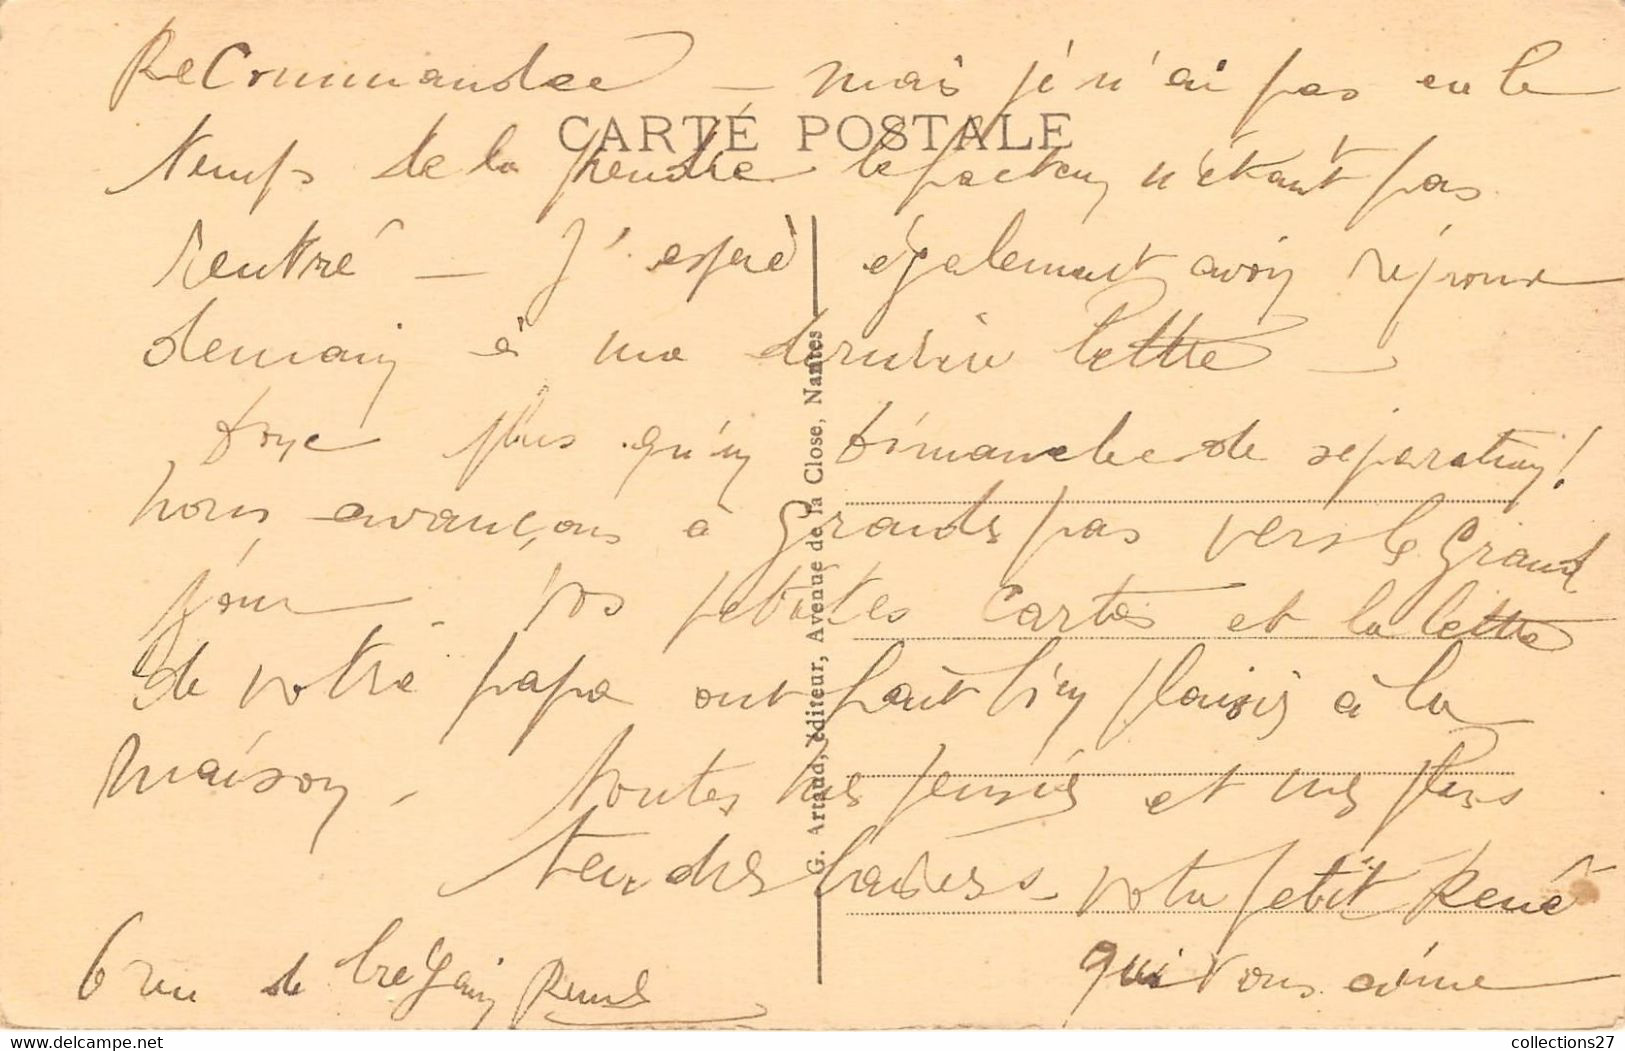 Recommandée — mais je n'ai pas eu le
CARTE POSTALE
temps de la prendre le facteur n'étant pas
rentré — J'espère également avoir réponse
demain à ma dernière lettre —
Donc plus qu'un dimanche de séparation!
nous avançons à grands pas vers le grand
jour. Vos petites cartes et la lettre
de votre papa ont fait bien plaisir à la
maison. Toutes mes pensées et mes plus
tendres baisers — votre petit René
qui vous aime
6 rue de
G. Artaud, éditeur, Avenue de la Close, Nantes
collections27